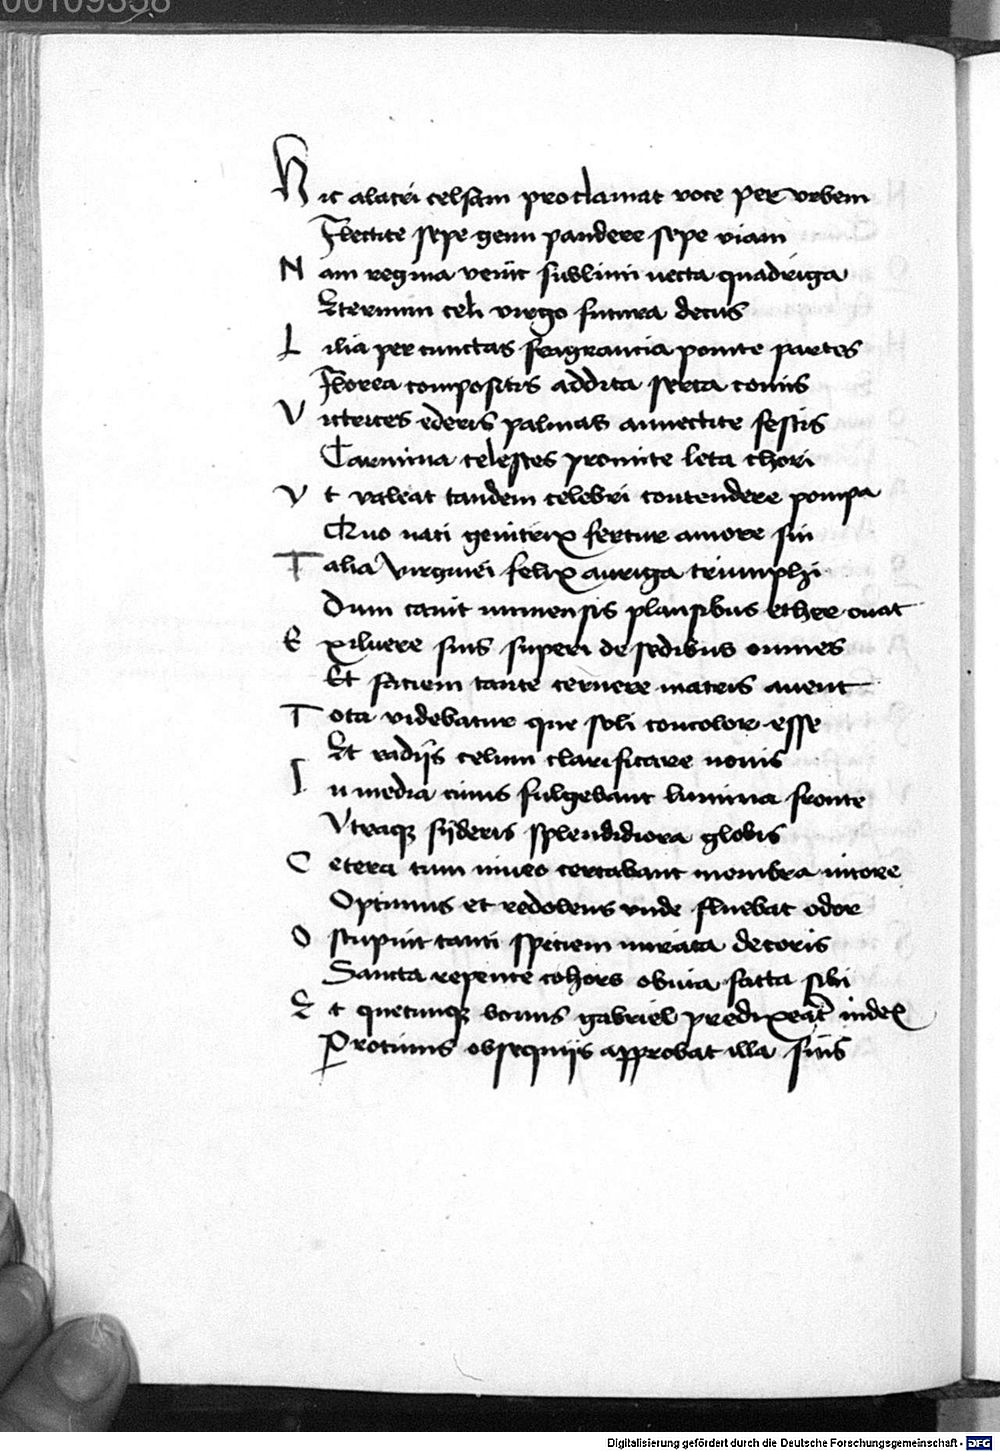 00109358
Hic alacri celsam proclamat voce per vrbem
Flectite sepe genu pandere sepe viam
Nam regina venit sublimi vecta quadriga
Eternum celi virgo futura decus
Lilia per cunctas fragrancia ponite partes
Florea compositis addita serta comis
Victrices ederis palmas annectite festis
Carmina celestes promite leta chori
Vt valeat tandem celebri contendere pompa
Quo nati genitrix fertur amore sui
Talia virginei felix auriga triumphi
Dum canit inmensis plausibus ether ouat
Exiluere suis superi de sedibus omnes
Et faciem tante cernere matris auent
Tota videbatur que soli concolor esse
Et radijs celum clarificare nouis
In media cuius fulgebant lumina fronte
Vtraque sijderis splendidiora globis
Cetera tum niueo certabant membra nitore
Optimus et redolens vnde fluebat odor
Ostupuit tanti speciem mirata decoris
Sancta repente cohors obuia facta sibi
Et quecunque bonus gabriel predixerat index
Protinus obsequijs approbat illa suis
Digitalisierung gefördert durch die Deutsche Forschungsgemeinschaft - DFG